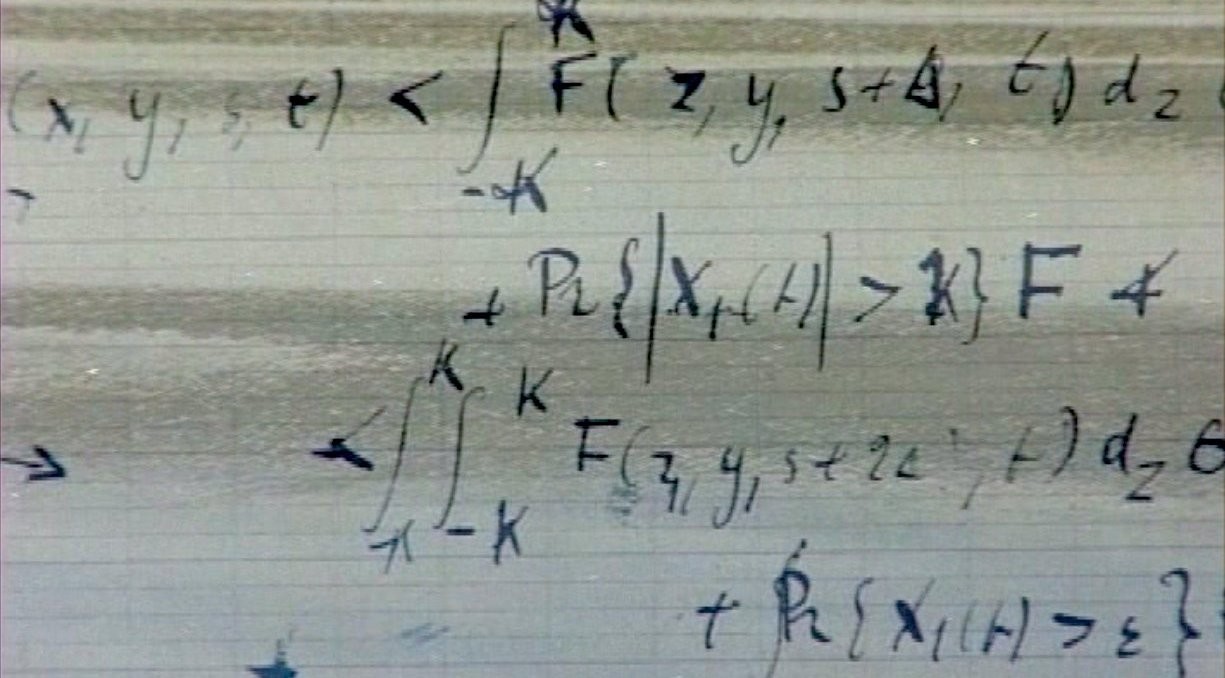 (x, y, s, t) < ∫ F(z, y, s+Δ, t) d_z
-K
+ Pr{|X₁(t)| > K} F <
→ < ∫∫ K K F(z, y, s+2 , t) d_z
-K
+ Pr{X₁(t) > ε}